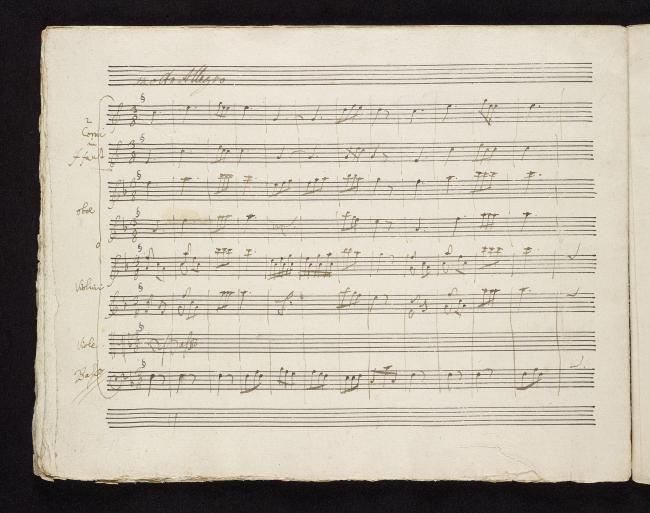 molto Allegro
2
Corni
in
f faut
oboe
Violini
Viole
Col Basso
Basso